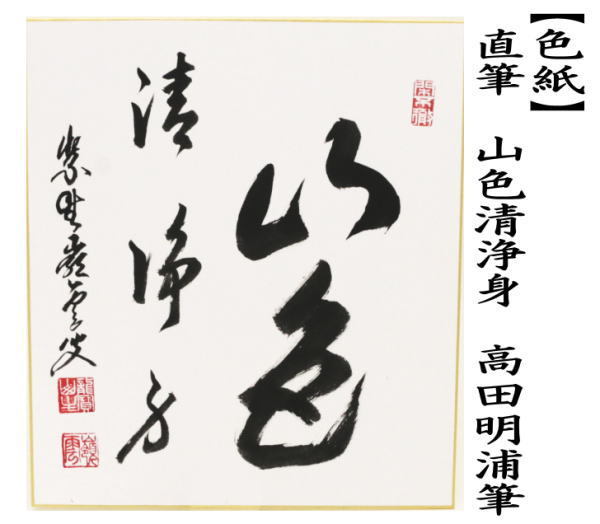 【色紙】
直筆 山色清浄身 高田明浦筆
山色
清浄身